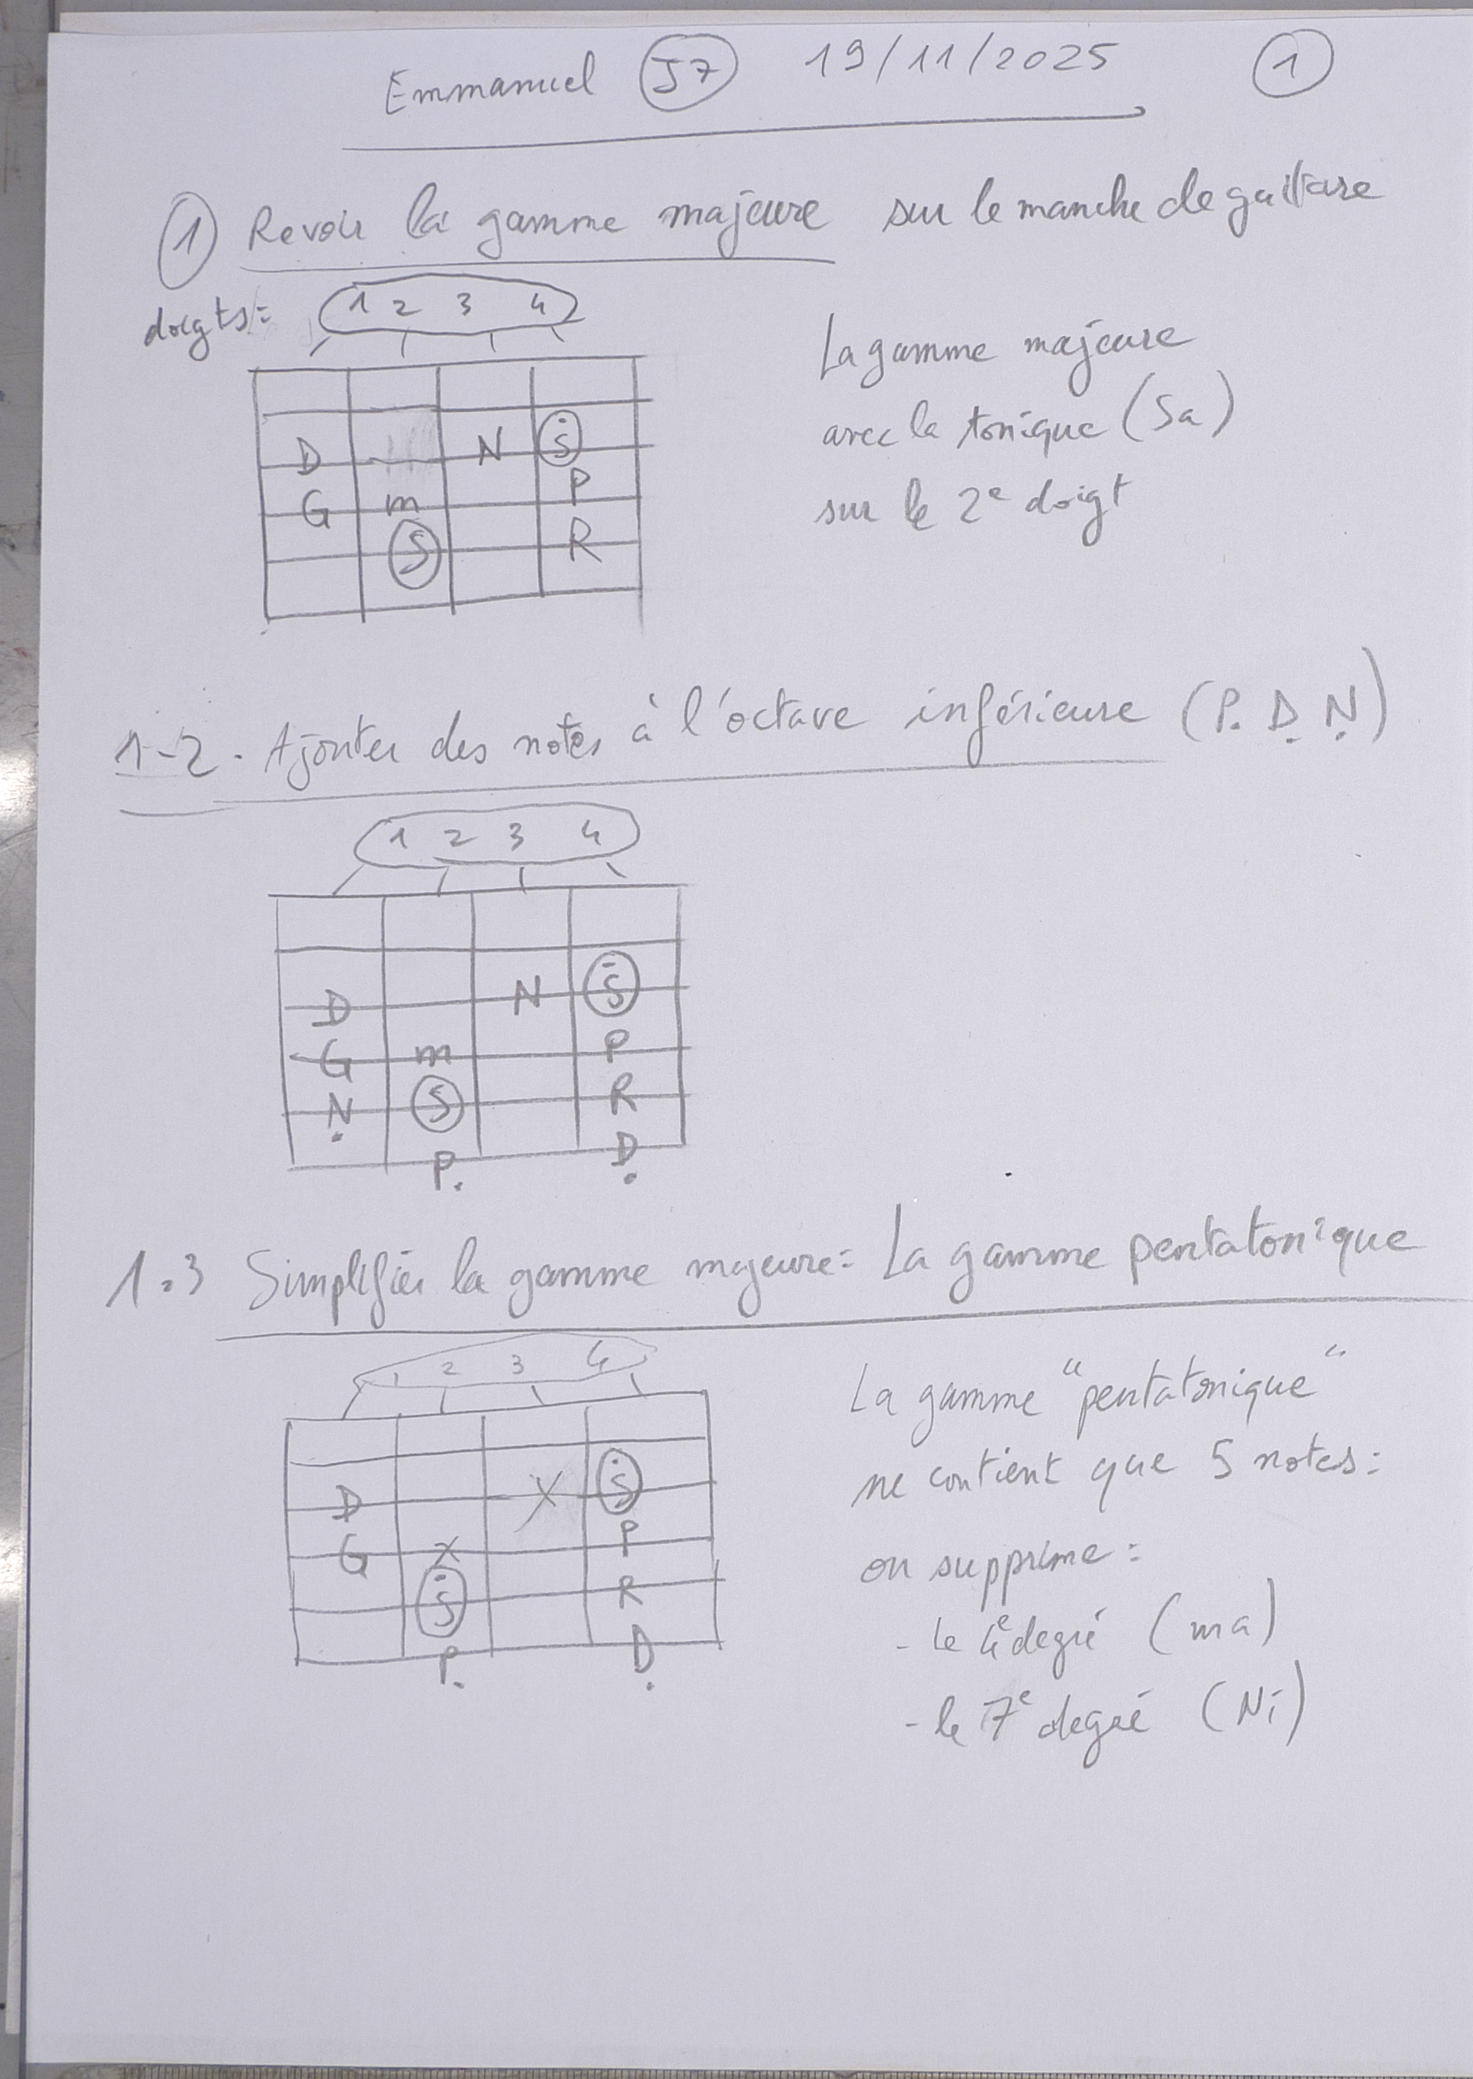 Emmanuel J7 19/11/2025 1
1 Revoir la gamme majeure sur le manche de guitare
doigts: 1 2 3 4
D N Ṡ
G m P
S R
La gamme majeure
avec la tonique (Sa)
sur le 2e doigt
1-2. Ajouter des notes à l'octave inférieure (P. Ḍ Ṇ)
1 2 3 4
D N Ṡ
G m P
Ṇ S R
P. Ḍ
1.3 Simplifier la gamme majeure: La gamme pentatonique
1 2 3 4
D X Ṡ
G X P
Ṡ R
P. Ḍ
La gamme "pentatonique"
ne contient que 5 notes:
on supprime:
- le 4e degré (ma)
- le 7e degré (Ni)